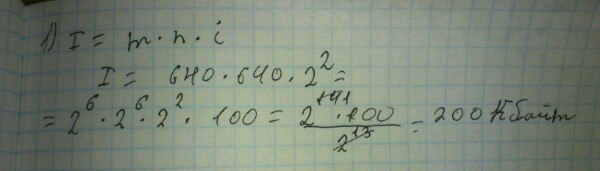 1) I = m·n·i
I = 640·640·2² =
= 2⁶·2⁶·2²·100 = 2¹⁴¹·100 / 2¹³ = 200 Кбайт